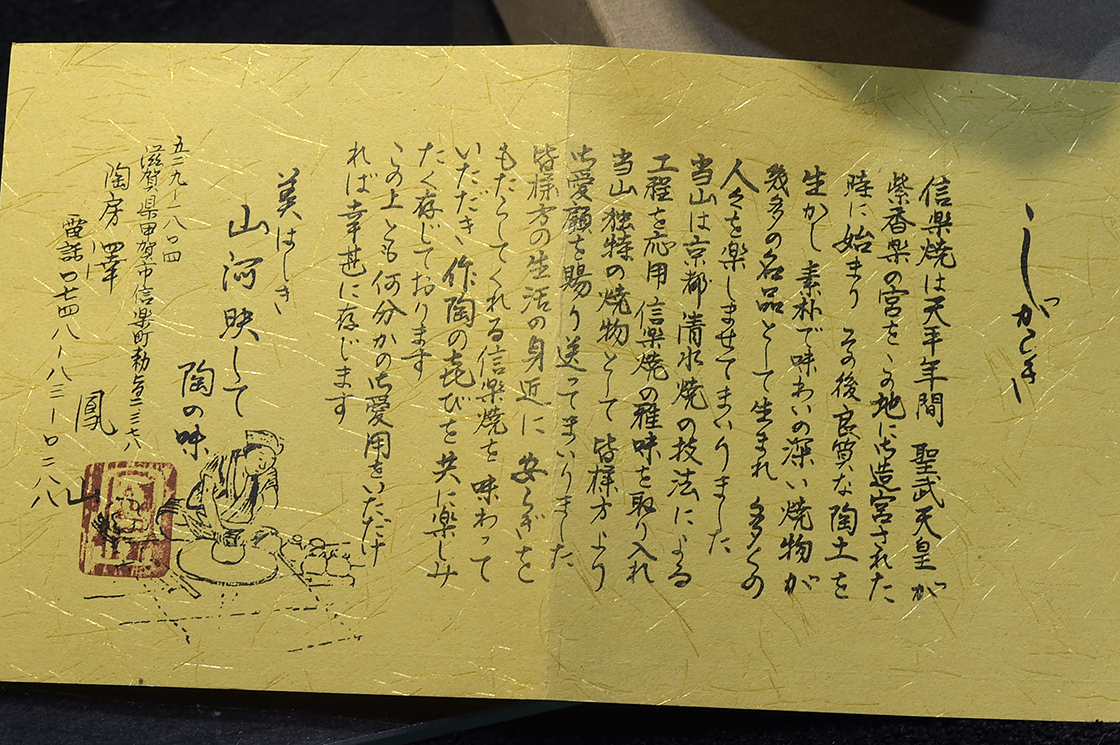 しがらき
信楽焼は天平年間 聖武天皇が
紫香楽の宮をこの地に御造宮された
時に始まり その後良質な陶土を
生かし 素朴で味わいの深い焼物が
幾多の名品として生まれ 多くの
人々を楽しませてまいりました
当山は京都清水焼の技法による
工程を応用 信楽焼の雅味を取り入れ
当山独特の焼物として 皆様方より
御愛顧を賜り送ってまいりました
皆様方の生活の身近に 安らぎを
もたらしてくれる信楽焼を 味わって
いただき、作陶の喜びを共に楽しみ
たく存じております
この上とも何分かの御愛用をいただけ
れば幸甚に存じます
美はしき
山河映して
陶の味
五二九-一八〇四
滋賀県甲賀市信楽町勅旨二三六
陶房 澤 鳳山
電話 〇七四八-八三-〇二八八